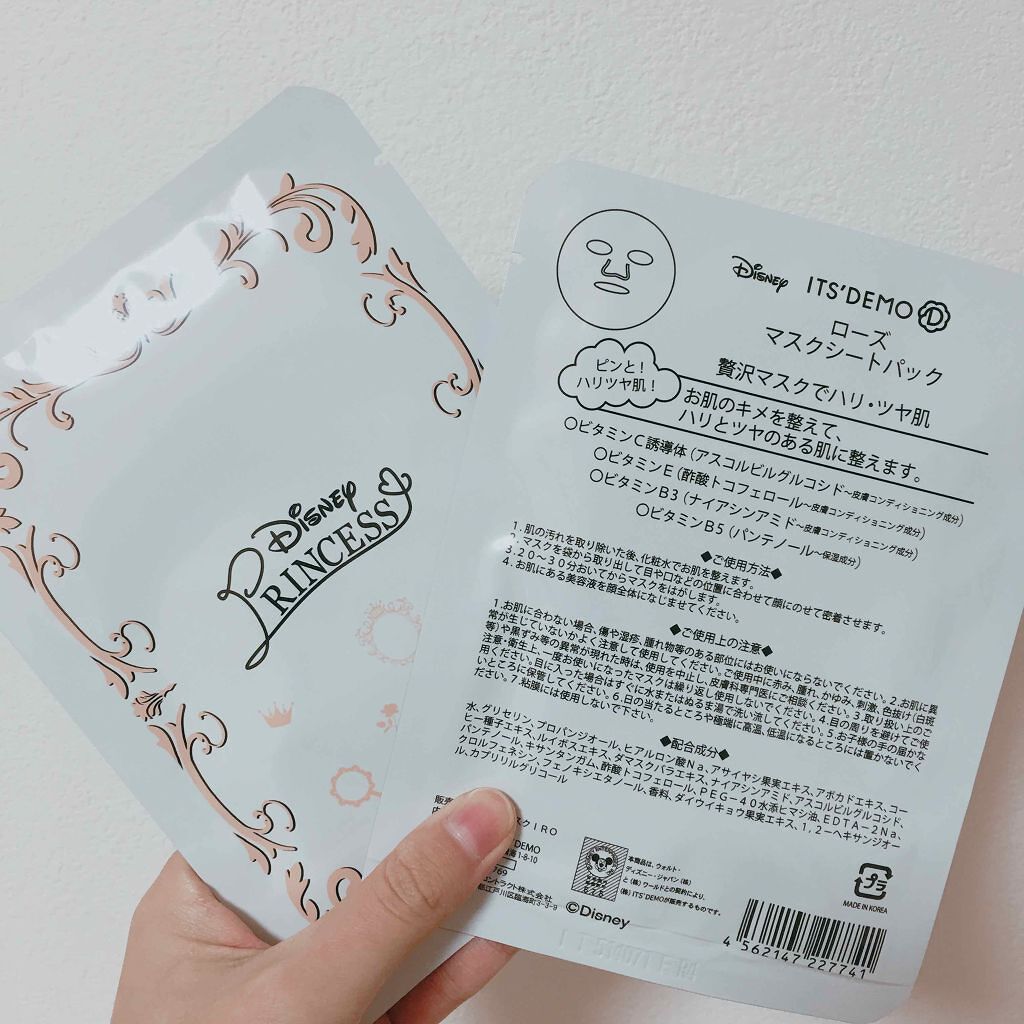 Disney
PRINCESS
Disney ITS'DEMO D
ローズ
マスクシートパック
贅沢マスクでハリ・ツヤ肌
ピンと！
ハリツヤ肌！
お肌のキメを整えて、
ハリとツヤのある肌に整えます。
〇ビタミンC誘導体(アスコルビルグルコシド～皮膚コンディショニング成分)
〇ビタミンE(酢酸トコフェロール～皮膚コンディショニング成分)
〇ビタミンB3(ナイアシンアミド～皮膚コンディショニング成分)
〇ビタミンB5(パンテノール～保湿成分)
◆ご使用方法◆
1.肌の汚れを取り除いた後、化粧水でお肌を整えます。
2.マスクを袋から取り出して目や口などの位置に合わせて顔にのせて密着させます。
3.20～30分おいてからマスクをはがします。
4.お肌にある美容液を顔全体になじませてください。
◆ご使用上の注意◆
1.お肌に合わない場合、傷や湿疹、腫れ物等のある部位にはお使いにならないでください。2.お肌に異
常が生じていないかよく注意して使用してください。ご使用中に赤み、腫れ、かゆみ、刺激、色抜け(白斑
等)や黒ずみ等の異常が現れた時は、使用を中止し、皮膚科専門医にご相談ください。3.取り扱い上のご
注意・衛生上、一度お使いになったマスクは繰り返し使用しないでください。4.目の周りを避けてご使
用ください。目に入った場合はすぐに水またはぬるま湯で洗い流してください。5.お子様の手の届かな
いところに保管してください。6.日の当たるところや極端に高温、低温になるところには置かないでく
ださい。7.粘膜には使用しないで下さい。
◆配合成分◆
水、グリセリン、プロパンジオール、ヒアルロン酸Na、アサイヤシ果実エキス、アボカドエキス、コー
ヒー種子エキス、ルイボスエキス、ダマスクバラエキス、ナイアシンアミド、アスコルビルグルコシド、
パンテノール、キサンタンガム、酢酸トコフェロール、PEG-40水添ヒマシ油、EDTA-2Na、
クロルフェネシン、フェノキシエタノール、香料、ダイウイキョウ果実エキス、1,2-ヘキサンジオー
ル、カプリリルグリコール
販売
スクIRO
DEMO
1-8-10
769
コントラクト株式会社
都江戸川区臨海町3-3-9
本商品は、ウォルト・
ディズニー・ジャパン(株)
と(株)ワールドとの契約により、
(株)ITS'DEMOが販売するものです。
©Disney
プラ
MADE IN KOREA
4 562147 227741